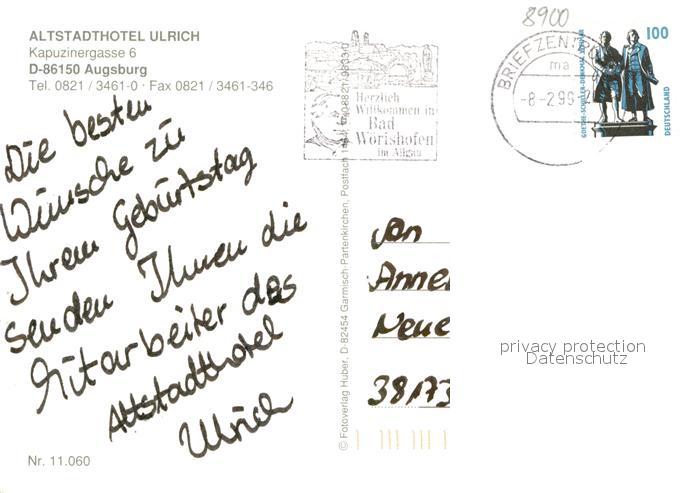 ALTSTADTHOTEL ULRICH
Kapuzinergasse 6
D-86150 Augsburg
Tel. 0821 / 3461-0 · Fax 0821 / 3461-346
Die besten
Wünsche zu
Ihrem Geburtstag
senden Ihnen die
Mitarbeiter des
Altstadthotel
Ulrich
Nr. 11.060
© Fotoverlag Huber, D-82454 Garmisch-Partenkirchen, Postfach
Herzlich
Willkommen in
Bad
Wörishofen
im Allgäu
8900
BRIEFZENTRUM
ma
-8-2.96
100
GOETHE-SCHILLER-DENKMAL
DEUTSCHLAND
An
Anne
Neue
38173
privacy protection
Datenschutz